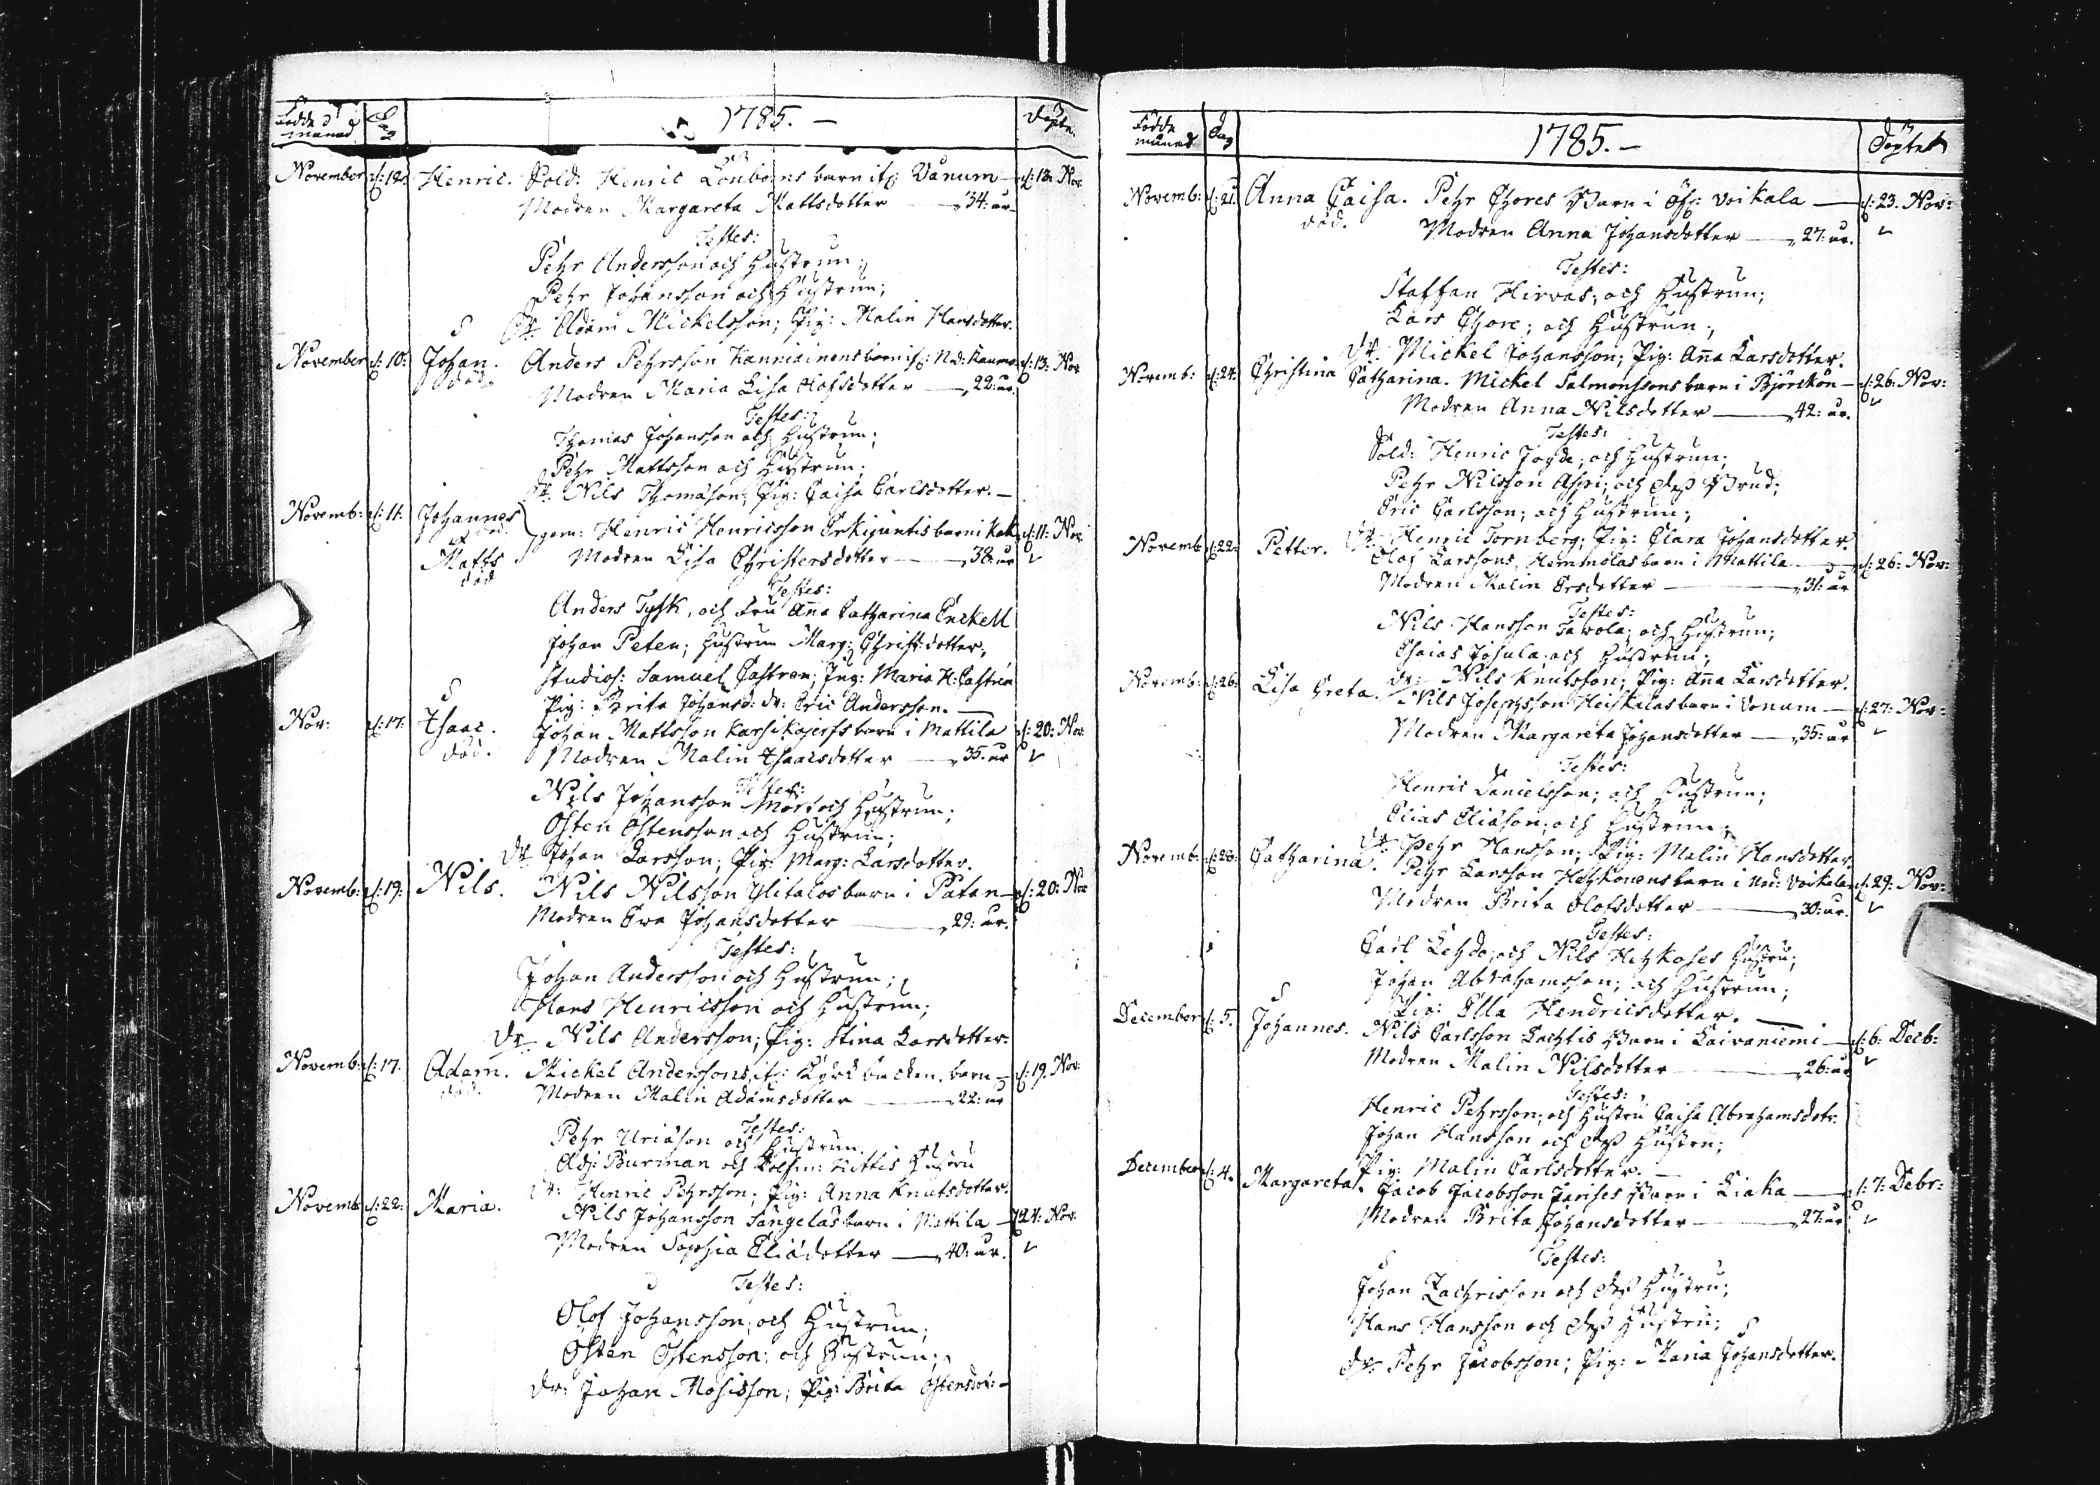 Födde månad Dag 1785.— Döpte.
November d: 12: Henric. Sold: Henric Lönborns barn if: Vånum— d: 13: Nov:
Modren Margareta Mattsdotter — 34: år
Testes:
Pehr Andersson och Hustrun;
Pehr Johansson och Hustrun;
Dr: Adam Mickelsson; Pig: Malin Hansdotter.
November d: 10: Johan. Anders Pehrsson Kanniainens barn if: Ned: d: 13: Nov
död. Modren Maria Lisa Olofsdotter — 22: år.
Testes:
Thomas Johansson och Hustrun;
Pehr Mattsson och Hustrun;
Dr: Nils Thomason; Pig: Caisa Carlsdotter.—
Novemb: d: 11: Johannes
gem: Henric Henricsson barn i d: 11: Nov
Matts Modren Lisa Christersdotter — 38: år
död
Testes:
Anders Tysk, och Fru Anna Catharina Enckell
Johan Peten; Hustrun Marg: Christ:dotter,
Studios: Samuel Castren; Jng: Maria H: Castrén
Pig: Brita Johansd: dr: Eric Andersson.—
Nov: d: 17: Isaac. Johan Mattsson Karsikojerfs barn i Mattila d: 20: Nov
död. Modren Malin Isaacsdotter — 35: år
Testes:
Nils Johansson Mört och Hustrun;
Östen Östensson och Hustrun;
Dr: Johan Larsson; Pig: Marg: Larsdotter.
Novemb: d: 19: Nils. Nils Nilsson Ylitalos barn i Päkan— d: 20: Nov
Modren Eva Johansdotter — 29: år.
Testes:
Johan Andersson och Hustrun;
Hans Henricsson och Hustrun;
Dr: Nils Andersson; Pig: Stina Larsdotter.
Novemb: d: 17: Adam. Mickel Anderssons, if: Kyrckbacken, barn— d: 19. Nov:
död. Modren Malin Adamsdotter — 22: år
Testes:
Pehr Uriason och Hustrun.
Adj: Burman och Hustru
Dr: Henric Pehrsson; Pig: Anna Knutsdotter.
Novemb d: 22: Maria. Nils Johansson Sangelas barn i Mattila — d 24: Nov:
Modren Sophia Eliædotter — 40: år.
Testes:
Olof Johansson; och Hustrun;
Östen Östensson; och Hustrun;
Dr: Johan Mosisson; Pig: Brita Östensdot:—
Födde månad Dag 1785.— Döptes
Novemb: d: 21: Anna Caisa. Pehr Thores Barn i Öf: Voikala — d: 23. Nov:
död. Modren Anna Johansdotter — 27: år.
Testes:
Staffan Hirvas; och Hustrun;
Lars Thore; och Hustrun;
Dr: Mickel Johansson; Pig: Anna Larsdotter.
Novemb: d: 24: Christina Catharina. Mickel Salmonssons barn i Björckön— d: 26: Nov:
Modren Anna Nilsdotter — 42: år.
Testes:
Sold: Henric Fogde; och Hustrun;
Pehr Nilsson och dess Brud;
Eric Carlsson; och Hustrun;
Dr: Henric Tornberg; Pig: Clara Johansdotter.
Novemb d: 22: Petter. Olof Larssons, Hemmolas barn i Mattila — d: 26: Nov:
Modren Malin Ersdotter — 31: år
Testes:
Nils Hansson Tavola; och Hustrun;
Esaias Josula; och Hustrun;
Dr: Nils Knutsson; Pig: Anna Larsdotter.
Novemb: d: 26: Lisa Greta. Nils Josephsson Heiskalas barn i Vonum — d: 27: Nov:
Modren Margareta Johansdotter — 35: år
Testes:
Henric Danielsson; och Hustrun;
Elias Eliason; och Hustrun;
Dr: Pehr Hansson; Pig: Malin Hansdotter.
Novemb: d: 28: Catharina. Pehr Larsson Heikonens barn i Ned: Voikala d: 29: Nov:
Modren Brita Olofsdotter — 30: år.
Testes:
Carl Lehto; och Nils Heikoses Hustru;
Johan Abrahamsson; och Hustrun;
Pig: Ella Hendricsdotter.—
December d: 5. Johannes. Nils Carlsson Lachtis Barn i Kaivaniemi— d: 6: Decb:
Modren Malin Nilsdotter — 26: år
Testes:
Henric Pehrsson; och Hustru Caisa Abrahamsdotr.
Johan Hansson och dess Hustru;
Pig: Malin Carlsdotter.—
December d: 4. Margareta. Jacob Jacobsson Jarises Barn i Liaka — d: 7: Debr:
Modren Brita Johansdotter — 27: år
Testes:
Johan Zachrisson och dess Hustru;
Hans Hansson och dess Hustru;
dr: Pehr Jacobsson; Pig: Maria Johansdotter.